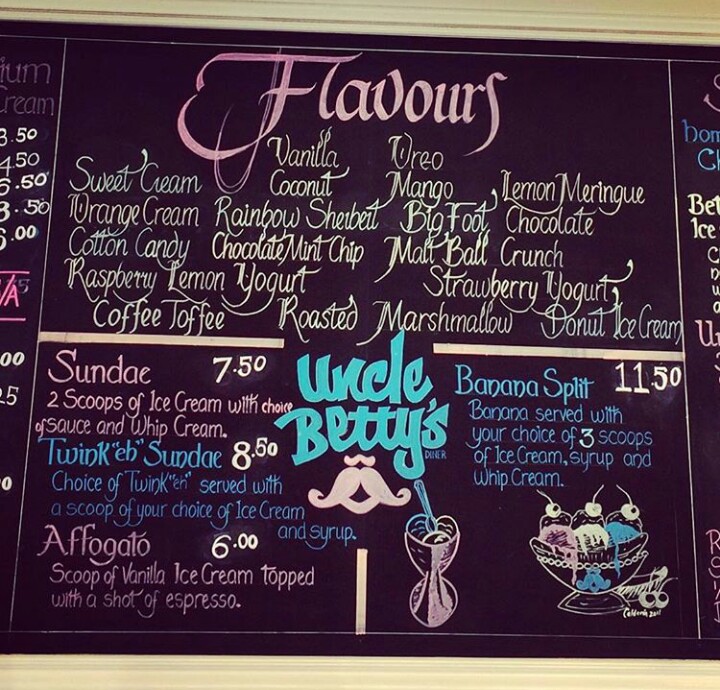 ium
Cream
3.50
4.50
6.50
8.50
6.00
.00
Flavours
Vanilla Oreo
Sweet Cream Coconut Mango Lemon Meringue
Orange Cream Rainbow Sherbert Big Foot Chocolate
Cotton Candy Chocolate Mint Chip Malt Ball Crunch
Raspberry Lemon Yogurt Strawberry Yogurt
Coffee Toffee Roasted Marshmallow Donut Ice Cream
Sundae 7.50
2 Scoops of Ice Cream with choice
of sauce and Whip Cream.
Twink"eh" Sundae 8.50
Choice of Twink"eh" served with
a scoop of your choice of Ice Cream
and syrup.
Affogato 6.00
Scoop of Vanilla Ice Cream topped
with a shot of espresso.
Uncle
Betty's
DINER
Banana Split 11.50
Banana served with
your choice of 3 scoops
of Ice Cream, syrup and
Whip Cream.
hom
Ch
Bet
Ice